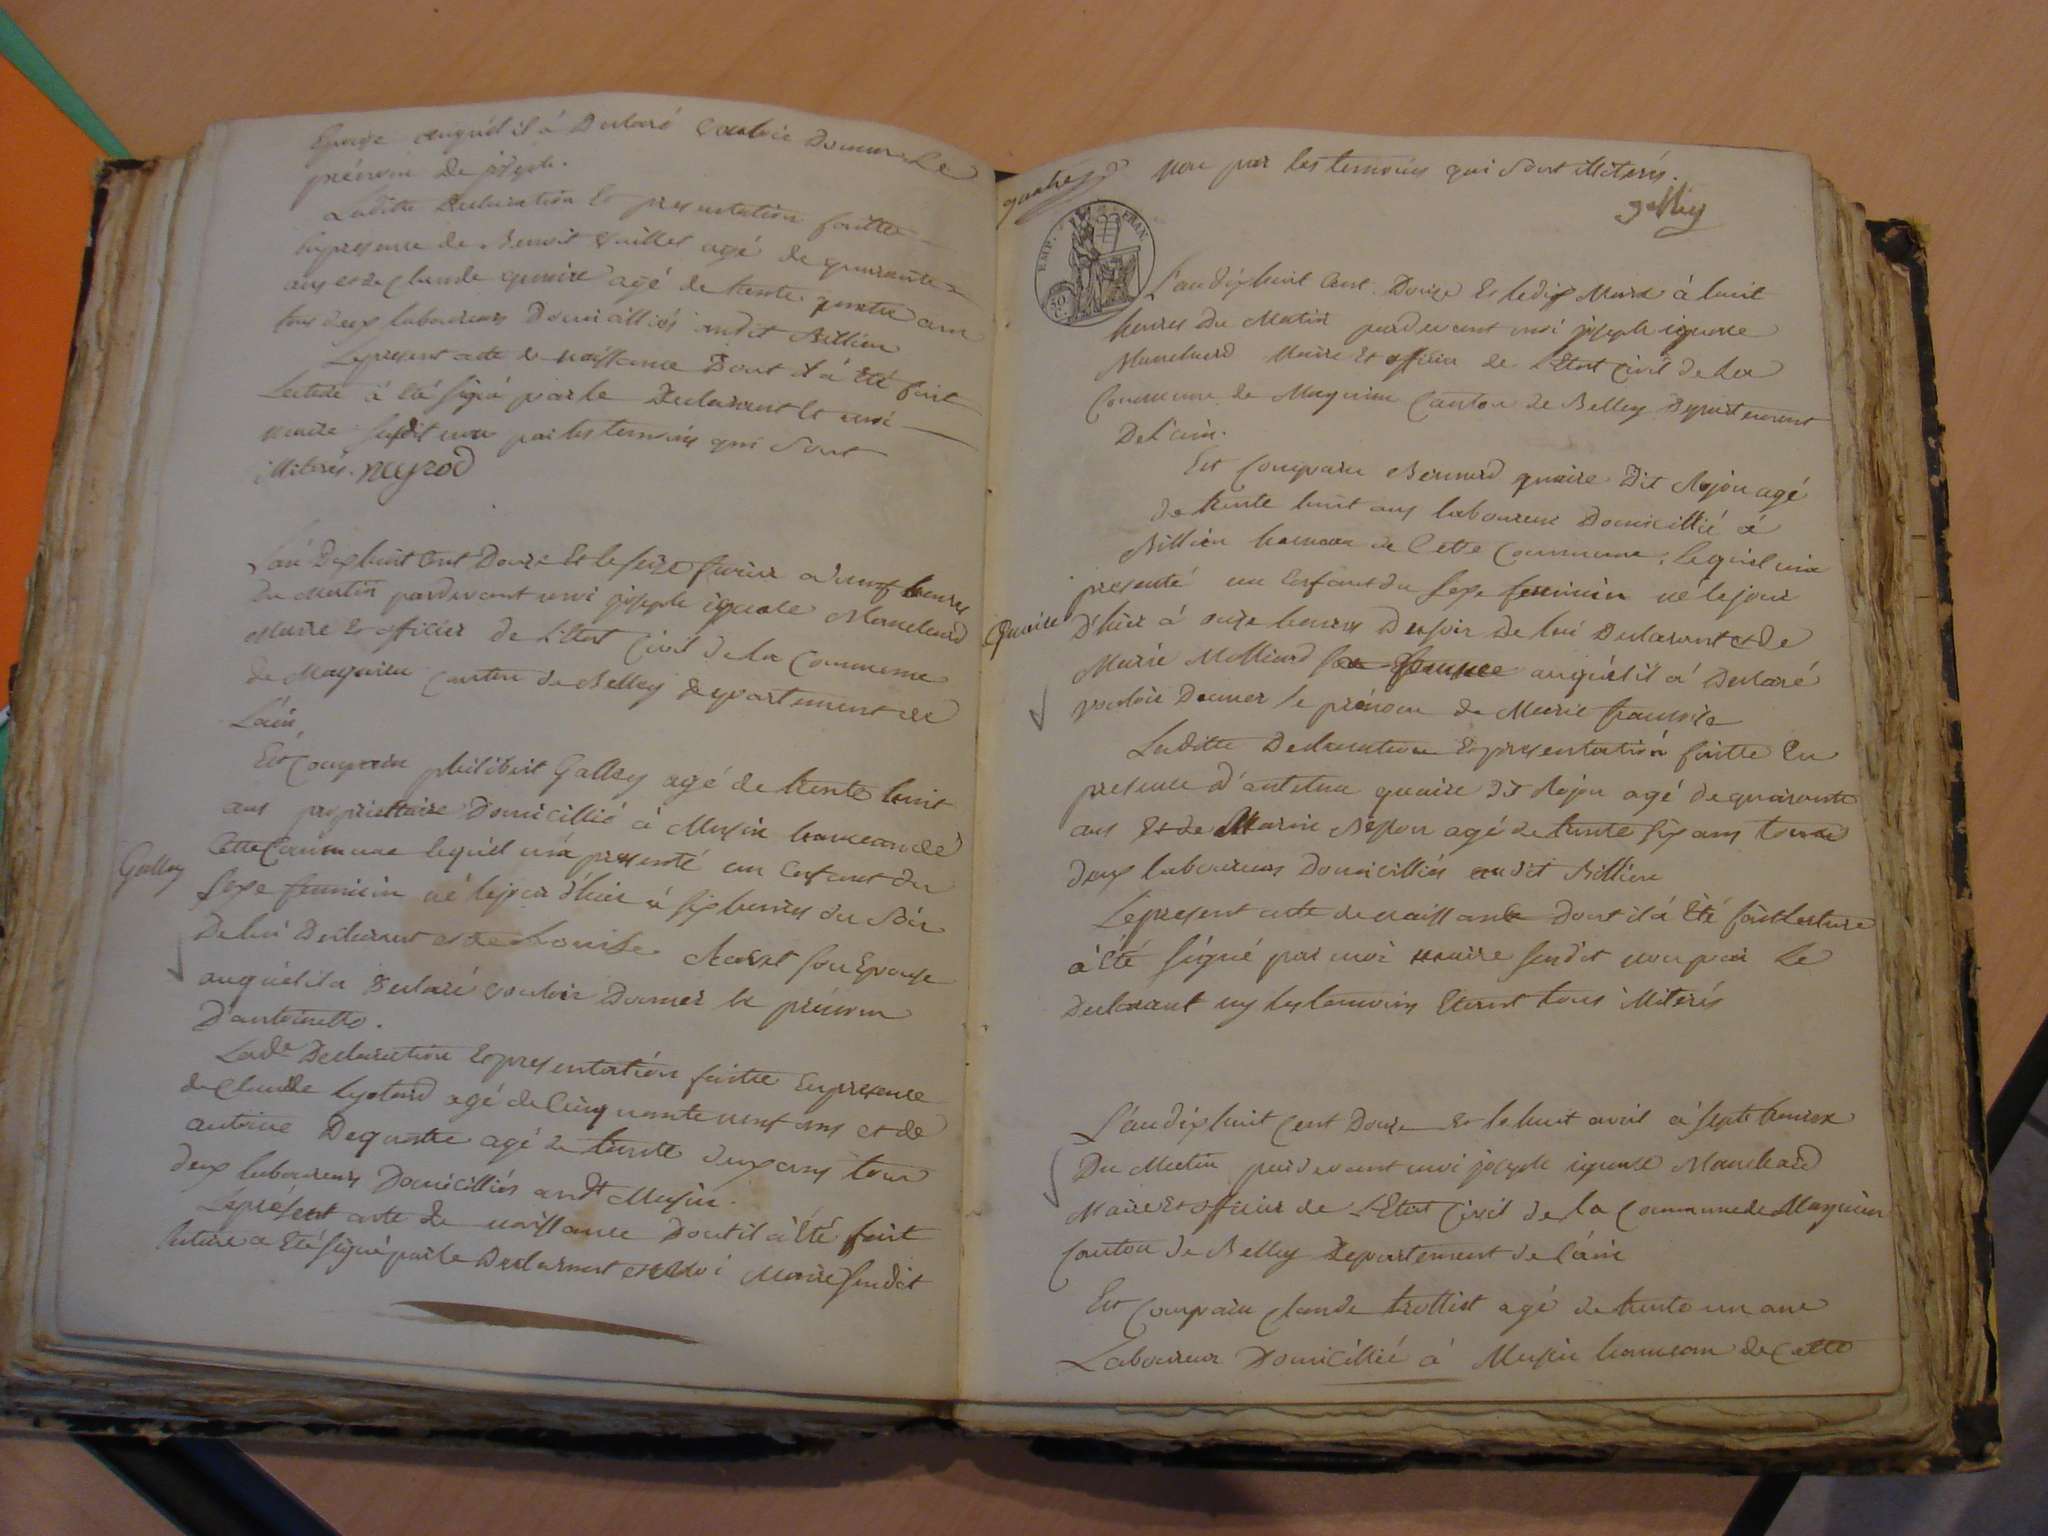 Epouse auquél il à Declaré vouloir Donner Le
prénom de joseph.
Laditte Declaration et presentation faitte
Enpresence de Benoit vuillet agé de quarante
ans et de Claude quaire agé de trente quatre ans
tous deux laboureurs Domicilliés audit Billieu
Lepresent acte de naissance Dont il à Eté fait
Lecture à Eté signé par le Declarant et moi
maire susdit non par les temoins qui sont
illiterés. neyrod
L'an Dixhuit Cent Douze Et le seize fevrier à neuf heures
Du Matin pardevant moi joseph ignace Marchand
Maire Et officier de L'Etat Civil de la Commune
de Magnieu Canton de Belley Departement de
L'ain
Est Comparu philibert Galley agé de trente huit
ans proprietaire Domicillié à Musin hameau de
Cette Commune lequél m'à presenté un Enfant du
Galley
Sexe feminin né lejour d'hier à six heures du Soir
De lui Declarant et de Louise son Epouse
auquél il a Declaré vouloir Donner le prénom
D'antoinette.
Lad.e Declaration Et presentation faitte Enpresence
de Claude agé de Cinquante neuf ans et de
antoine Dequatre agé de trente deux ans tous
deux laboureurs Domicilliés aud.t Musin.
Leprésent acte de naissance Dont il à Eté fait
Lecture a Eté Signé par le Declarant et Moi Maire Susdit
quatre
non par les temoins qui sont illiterés.
galley
EMP. FRAN.
L'an dixhuit Cent Douze Et le dix Mars à huit
heures du Matin pardevant moi joseph ignace
Marchand Maire Et officier de L'Etat Civil de La
Commune de Magnieu Canton de Belley Departement
De L'ain.
Est Comparu Bernard quaire Dit Rojon agé
de trente huit ans laboureur Domicillié à
Billieu hameau de Cette Commune, Lequél m'à
presenté un Enfant du Sexe feminin né le jour
Quaire
D'hier à onze heures Du soir De lui Declarant et de
Marie Molliard sa femme auquél il à Declaré
vouloir Donner le prénom de Marie francoise
Laditte Declaration Et presentation faitte En
presence d'antoine quaire Dt Rojon agé de quarante
ans Et de Marin Besson agé de trente six ans tous
deux laboureurs Domicilliés audit Billieu
Lepresent acte de naissance Dont il à Eté fait Lecture
à Eté Signé par moi maire susdit non par Le
Declarant ny les temoins Etant tous illiterés
L'an dixhuit Cent Douze Et le huit avril à Sept heures
Du Matin pardevant moi joseph ignace Marchand
Maire Et officier de L'Etat Civil de la Commune de Magnieu
Canton de Belley Departement de L'ain
Est Comparu Claude trottet agé de trente un ans
Laboureur Domicillié à Musin hameau de Cette